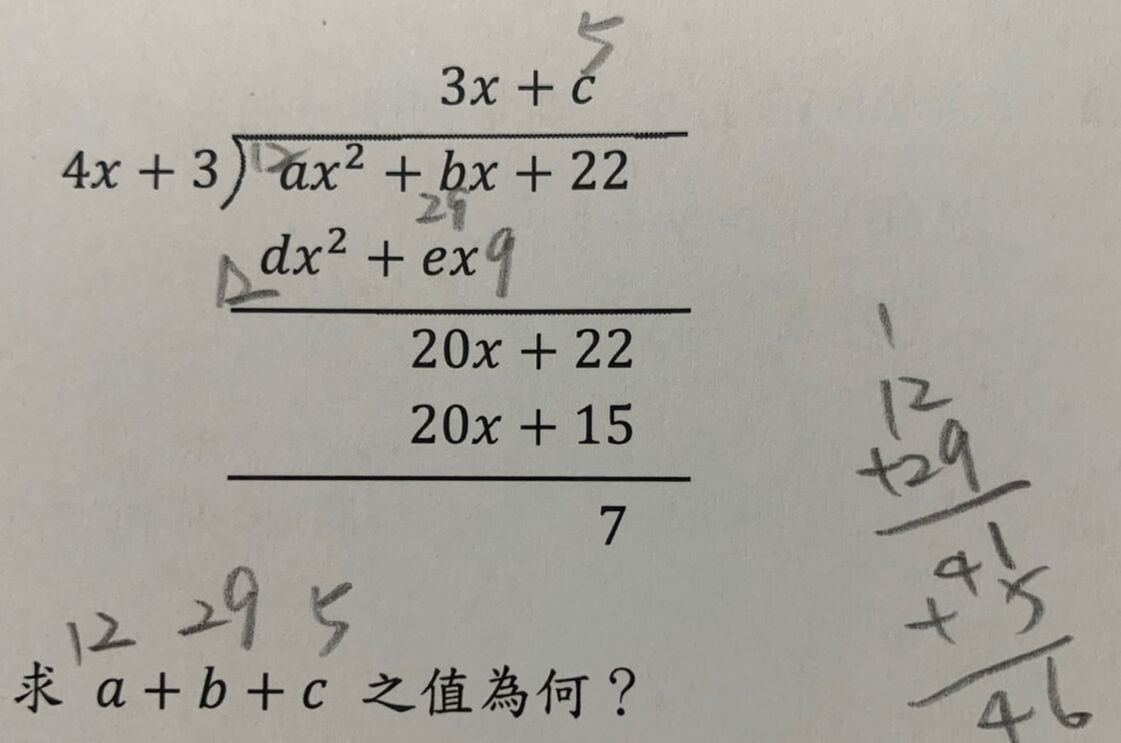 5
3x + c
4x + 3) 12 ax² + bx + 22
29
12 dx² + ex 9
20x + 22
20x + 15
7
12 29 5
求 a + b + c 之值為何？
1
12
+29
41
+ 5
46